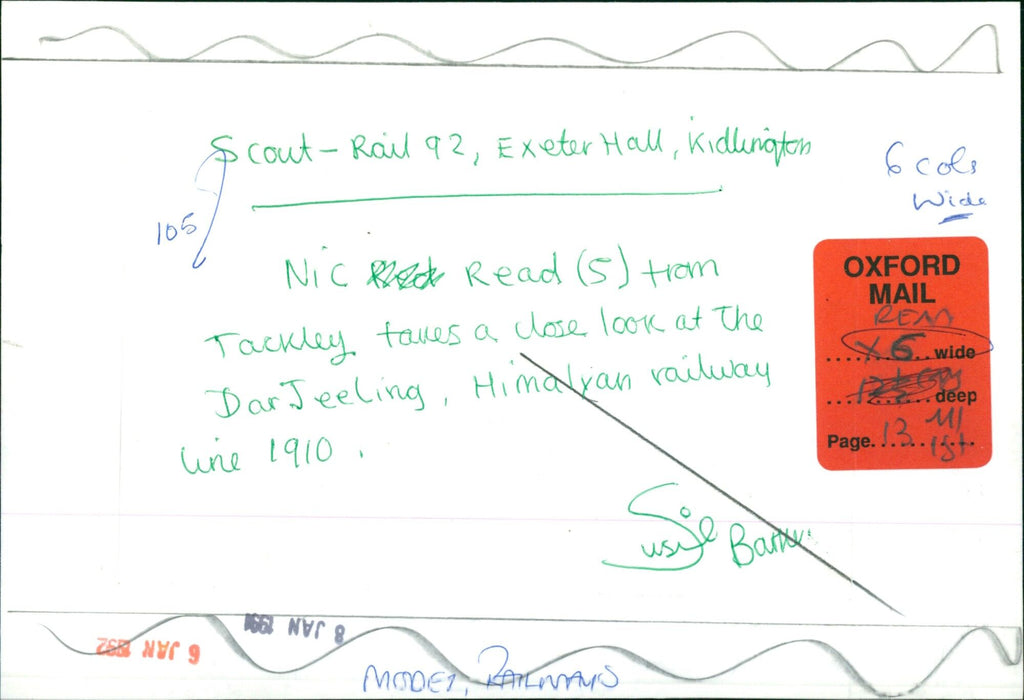 Scout - Rail 92, Exeter Hall, Kidlington
6 cols
Wide
105
Nic Read (5) from
Tackley takes a close look at the
DarJeeling, Himalyan railway
line 1910.
OXFORD
MAIL
REM
X6 wide
deep
Page 13 M1
1st
Susie Barker
8 JAN
6 JAN 1992
MODEL, RAILWAYS